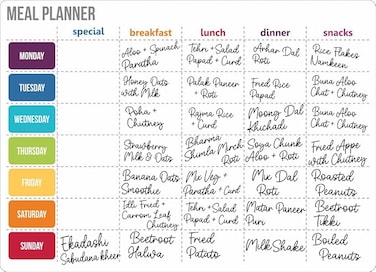 MEAL PLANNER
special breakfast lunch dinner snacks
MONDAY
Aloo + Spinach
Paratha
Tehri + Salad
Papad + Curd
Arhar Dal
Roti
Rice Flakes
Namkeen
TUESDAY
Honey Oats
with Milk
Palak Paneer
+ Roti
Fried Rice
Papad
Buna Aloo
Chat + Chutney
WEDNESDAY
Poha +
Chutney
Rajma Rice
+ Curd
Moong Dal
Khichadi
Buna Aloo
Chat + Chutney
THURSDAY
Strawberry
Milk & Oats
Bharma
Shimla Mirch
Roti
Soya Chunk
Aloo + Roti
Fried Appe
with Chutney
FRIDAY
Banana Oats
Smoothie
Mix Veg +
Paratha + Curd
Mix Dal
Roti
Roasted
Peanuts
SATURDAY
Idli Fried +
Carrom Leaf
Chutney
Tehri + Salad
Papad + Curd
Matar Paneer
Puri
Beetroot
Tikki
SUNDAY
Ekadashi
Sabudana kheer
Beetroot
Halwa
Fried
Potato
MilkShake
Boiled
Peanuts